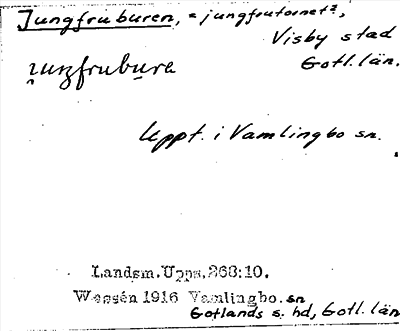 Jungfruburen, = jungfrutornet?,
Visby stad
Gotl. län.
i̯uŋfrubu̱ra
Uppt. i Vamlingbo sn.
Landsm. Upps. 268:10.
Wessén 1916 Vamlingbo. sn
Gotlands s. hd, Gotl. län